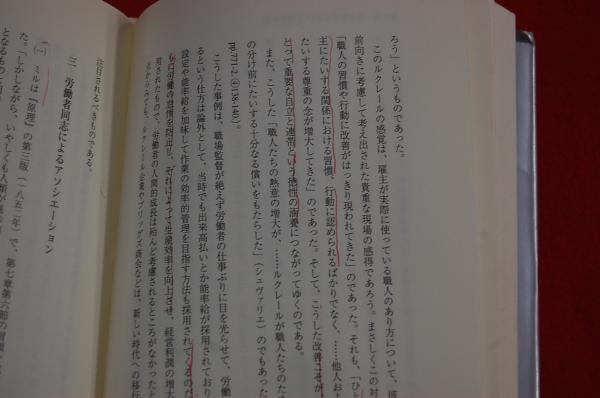 ろう」というものであった。
このルクレールの感覚は、雇主が実際に使っている職人のあり方について、彼
前向きに考慮して考え出された貴重な現場の感得であろう。まさしくこの対
「職人の習慣や行動に改善がはっきり現われてきた」のであった。それも、「ひと
主にたいする関係における習慣、行動に認められるばかりでなく、……他人およ
たいする尊重の念が増大してきた」のであった。そして、こうした改善こそが
とって重要な自立と連帯という徳性の涵養につながってゆくのである。
また、こうした「職人たちの熱意の増大が、……ルクレールが職人たちのため
の分け前にたいする十分なる償いをもたらした」(シュヴァリエ)のでもあった
pp.771-2, ④138-140)。
こうした事例は、職場監督が絶えず労働者の仕事ぶりに目を光らせて、労働
るという仕方は論外として、当時でも出来高払いとか能率給が採用されており
設定や能率給を加味して作業の効率的管理を目指す方法も採用されてくるのだ
もに労働の怠惰を防止し、それによって生産効率を向上させ、経営利潤の増大
用されたもので、労働者の人間的成長は殆んど考慮されるところがなかったと
さからみても、ルクレール企業やブリッグズ商会などは、新しい時代への移行
注目されるべきものである。
三 労働者同志によるアソシエーション
(一) ミルは『原理』の第三版(一八五二年)で、第七章第六節の
た。「しかしながら、いやしくも人類が
となるもの